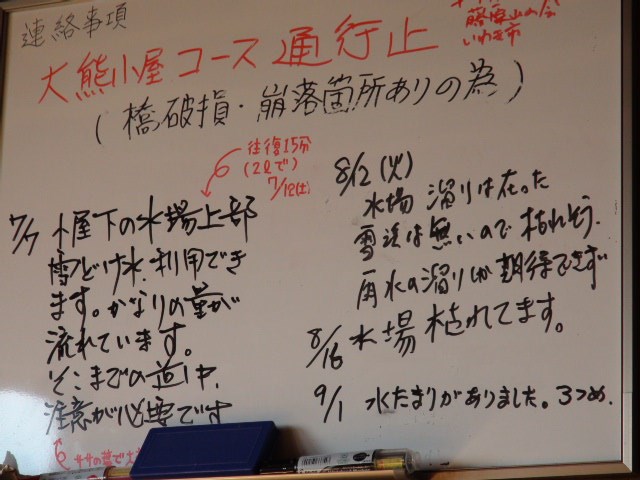 連絡事項
いわき市
大熊小屋コース通行止
(橋破損・崩落箇所ありの為)
往復15分
(2ℓで)
7/12(土)
7/7 小屋下の水場上部
雪どけ水、利用でき
ます。かなりの量が
流れています。
そこまでの道中、
注意が必要です
ササの葉で
8/12(火)
水場 溜りは在った
雪渓は無いので枯れそう.
雨水の溜りしか期待できず
8/16 水場 枯れてます。
9/1 水たまりがありました。3つめ.